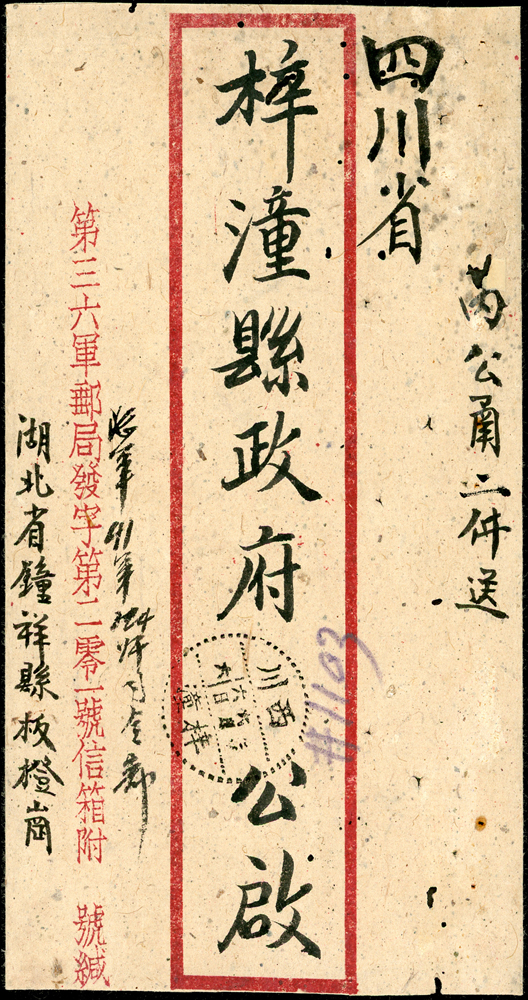 內公甬二件送
四川省
梓潼縣政府 公啟
#1103
西川
梓潼
91軍
司令部
第三六軍郵局發字第二零一號信箱附 號緘
湖北省鐘祥縣板橙崗